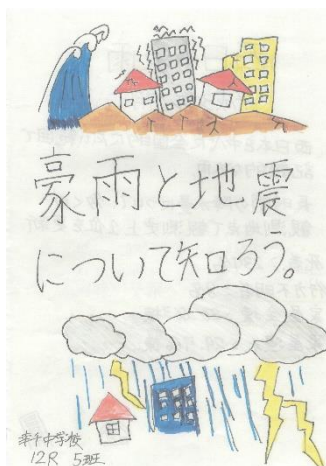 豪雨と地震
について知ろう。
中学校
12R 5班